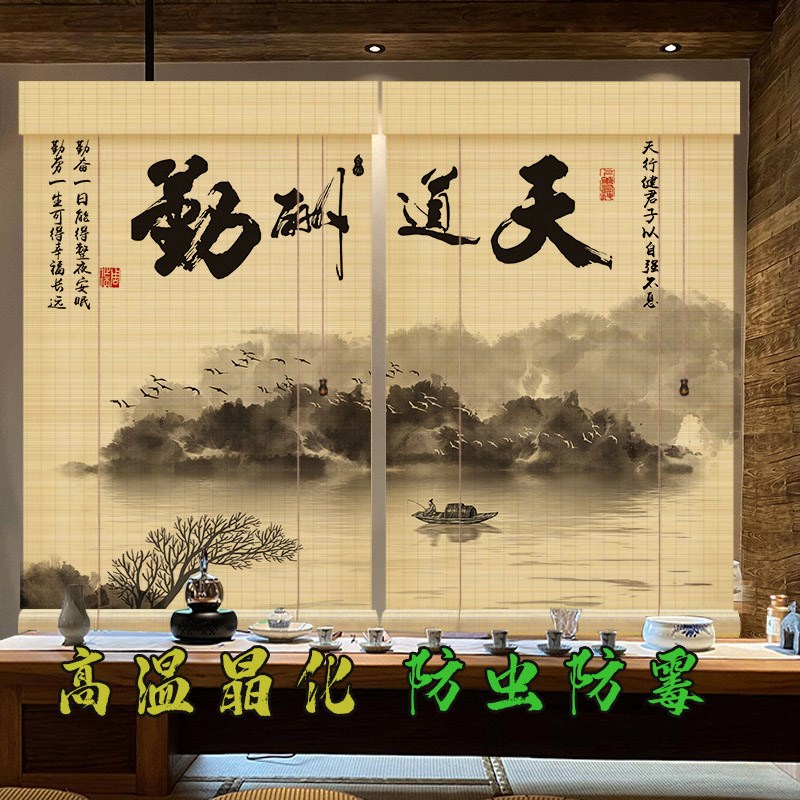 天行健君子以自强不息
天道酬勤
勤奋一日能得整夜安眠
勤劳一生可得幸福长远
高温晶化 防虫防霉